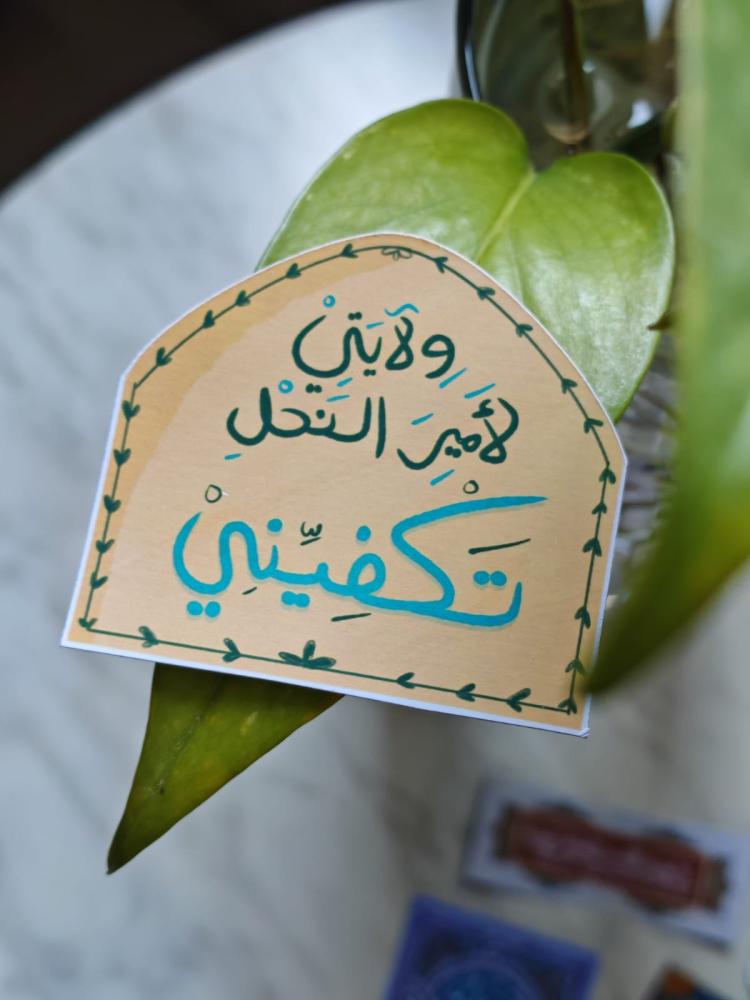 ولآيَتِيْ
لأَمِيرِ النَحْلِ
تَكْفِيِّنِيْ